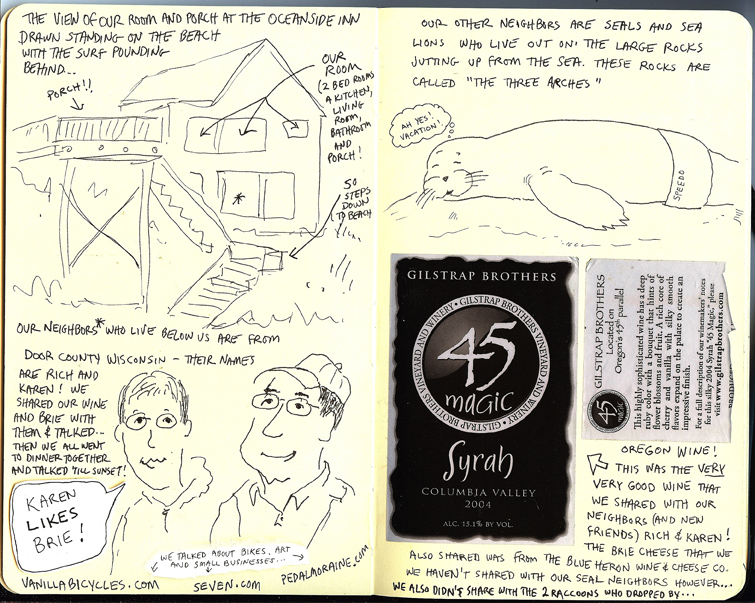 THE VIEW OF OUR ROOM AND PORCH AT THE OCEANSIDE INN
DRAWN STANDING ON THE BEACH
WITH THE SURF POUNDING
BEHIND...
PORCH!!
OUR
ROOM
(2 BED ROOMS
A KITCHEN,
LIVING
ROOM,
BATHROOM
AND
PORCH!
*
50
STEPS
DOWN
TO BEACH
OUR NEIGHBORS* WHO LIVE BELOW US ARE FROM
DOOR COUNTY WISCONSIN - THEIR NAMES
ARE RICH AND
KAREN! WE
SHARED OUR WINE
AND BRIE WITH
THEM & TALKED...
THEN WE ALL WENT
TO DINNER TOGETHER
AND TALKED 'TILL SUNSET!
KAREN
LIKES
BRIE!
WE TALKED ABOUT BIKES, ART
AND SMALL BUSINESSES...
VANILLABICYCLES.COM
SEVEN.COM
PEDALMORAINE.COM
OUR OTHER NEIGHBORS ARE SEALS AND SEA
LIONS WHO LIVE OUT ON THE LARGE ROCKS
JUTTING UP FROM THE SEA. THESE ROCKS ARE
CALLED "THE THREE ARCHES"
AH YES!
VACATION!
SPEEDO
GILSTRAP BROTHERS
GILSTRAP BROTHERS VINEYARD AND WINERY • GILSTRAP BROTHERS VINEYARD AND WINERY •
45
magic
Syrah
COLUMBIA VALLEY
2004
ALC. 15.1% BY VOL.
45
magic
GILSTRAP BROTHERS
Located on
Oregon's 45th parallel
This highly sophisticated wine has a deep
ruby color with a bouquet that hints of
flower blossoms and fruit. A rich core of
cherry and vanilla with silky smooth
flavors expand on the palate to create an
impressive finish.
For a full description of our winemakers' notes
for this silky 2004 Syrah "45 Magic," please
visit www.gilstrapbrothers.com
OREGON WINE!
THIS WAS THE VERY
VERY GOOD WINE THAT
WE SHARED WITH OUR
NEIGHBORS (AND NEW
FRIENDS) RICH & KAREN!
THE BRIE CHEESE THAT WE
ALSO SHARED WAS FROM THE BLUE HERON WINE & CHEESE CO.
WE HAVEN'T SHARED WITH OUR SEAL NEIGHBORS HOWEVER...
WE ALSO DIDN'T SHARE WITH THE 2 RACCOONS WHO DROPPED BY...